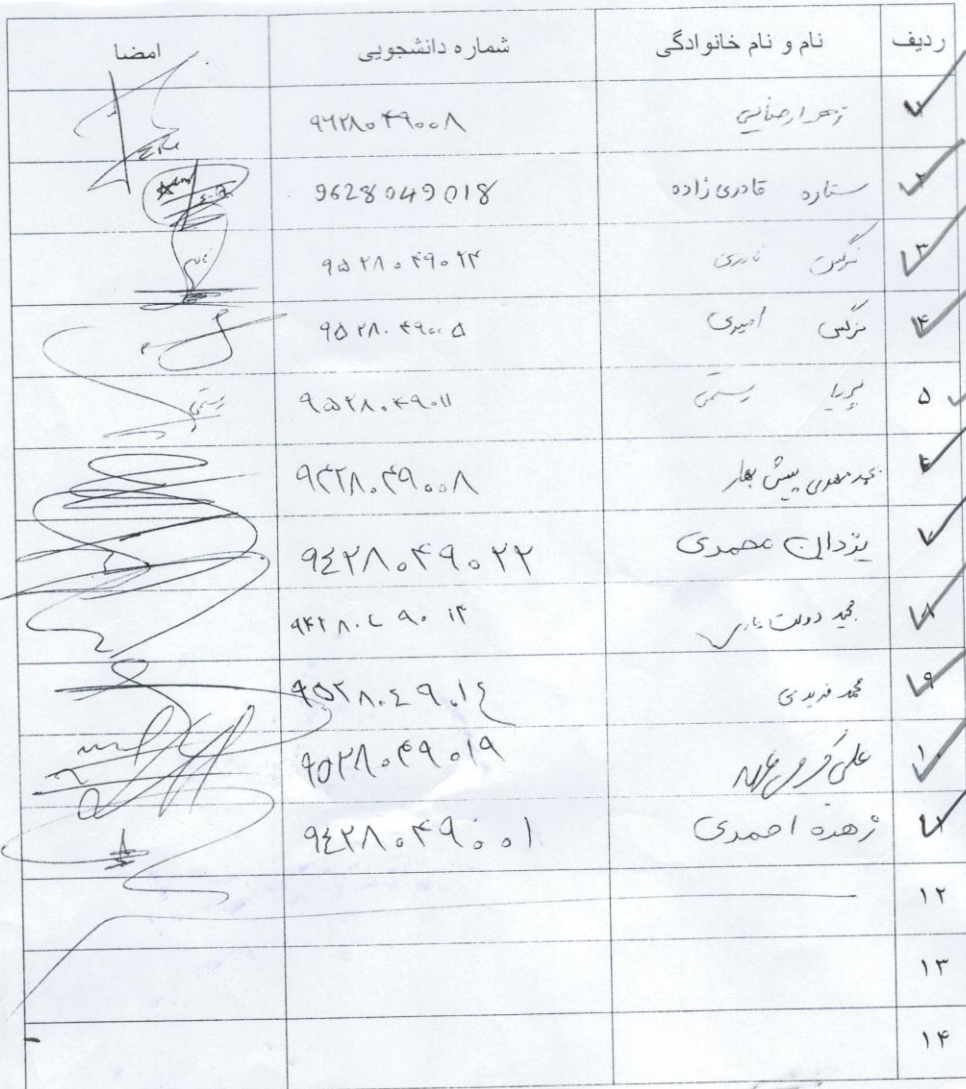 ردیف نام و نام خانوادگی شماره دانشجویی امضا
۱ زهرا رضایی ۹۶۲۸۰۴۹۰۰۸
۲ ستاره قادری زاده 9628049018
۳ نرگس نادری ۹۵۲۸۰۴۹۰۲۴
۴ نرگس امیری ۹۵۲۸۰۴۹۰۰۵
۵ پریا رستمی ۹۵۲۸۰۴۹۰۱۱ رستمی
۶ محمد مهدی پیش بهار ۹۴۲۸۰۴۹۰۰۸
۷ یزدان محمدی ۹۴۲۸۰۴۹۰۲۲
۸ مجید دولت ۹۴۲۸۰۴۹۰۱۴
۹ محمد فریدی ۹۵۲۸۰۴۹۰۱۴
۱۰ علی ۹۵۲۸۰۴۹۰۱۹
۱۱ زهره احمدی ۹۴۲۸۰۴۹۰۰۱
۱۲
۱۳
۱۴